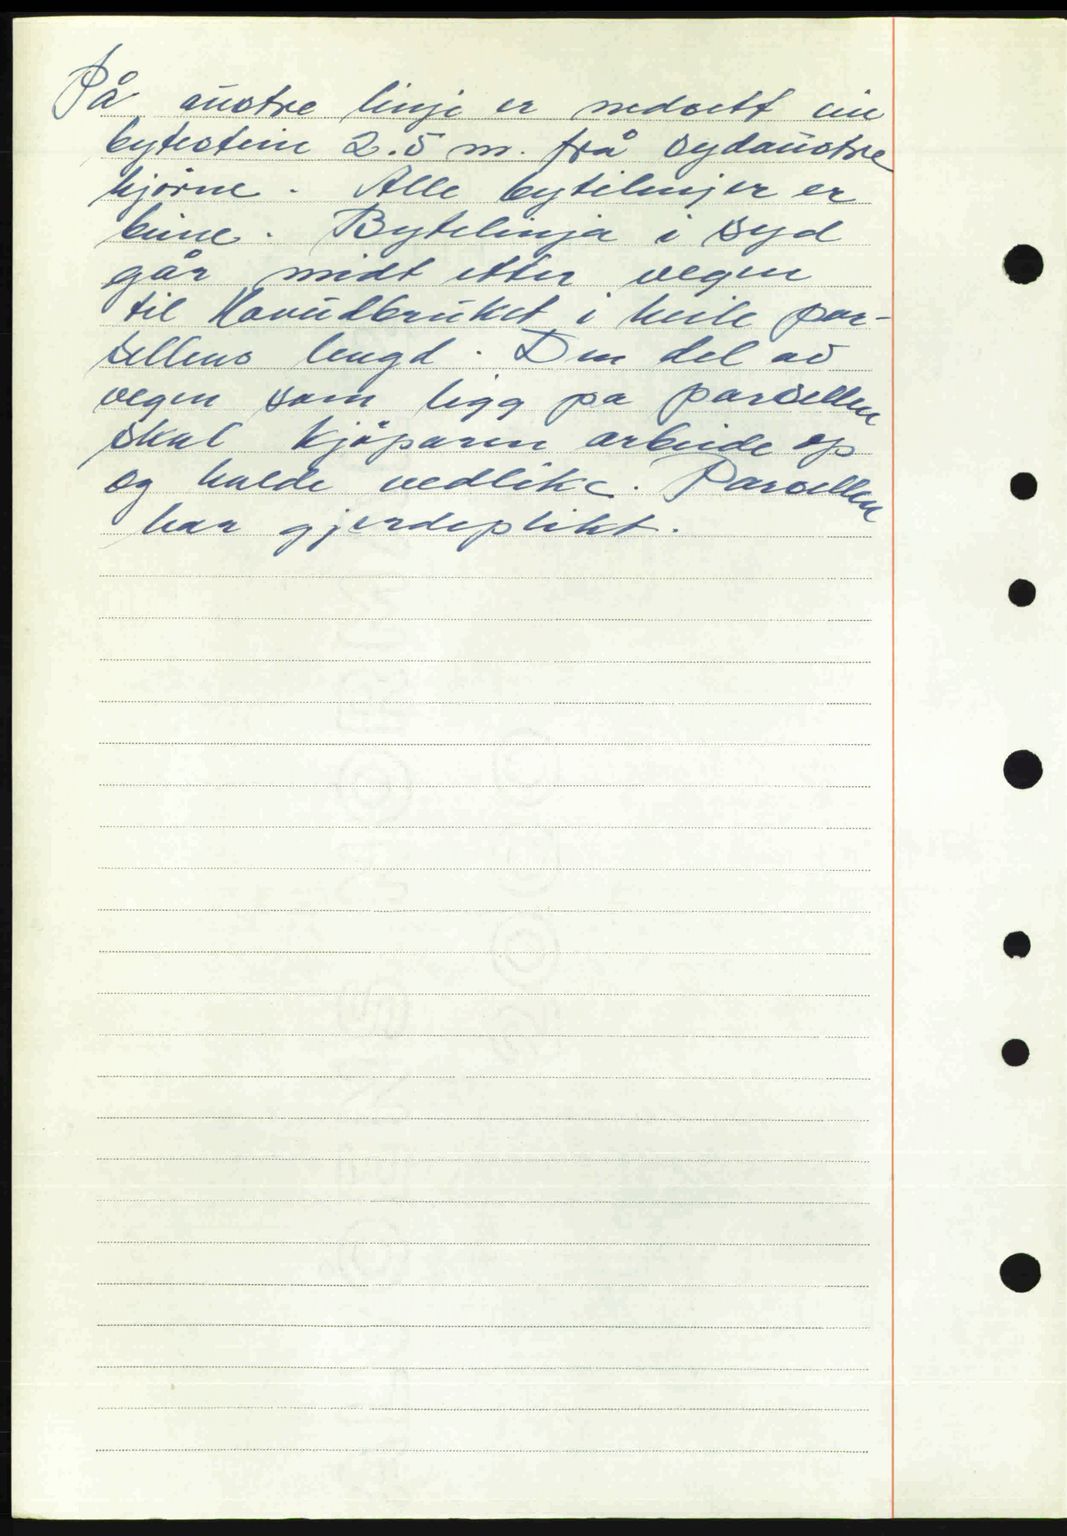 På austre linje er nedsett ein
bytestein 2.5 m. frå sydaustre
hjörne. Alle bytelinjer er
beine. Bytelinja i syd
går midt etter vegen
til Hovudbruket i heile par-
sellens lengd. Den del av
vegen som ligg på parsellen
skal kjöparen arbeide op
og halde vedlike. Parsellen
har gjerdeplikt.